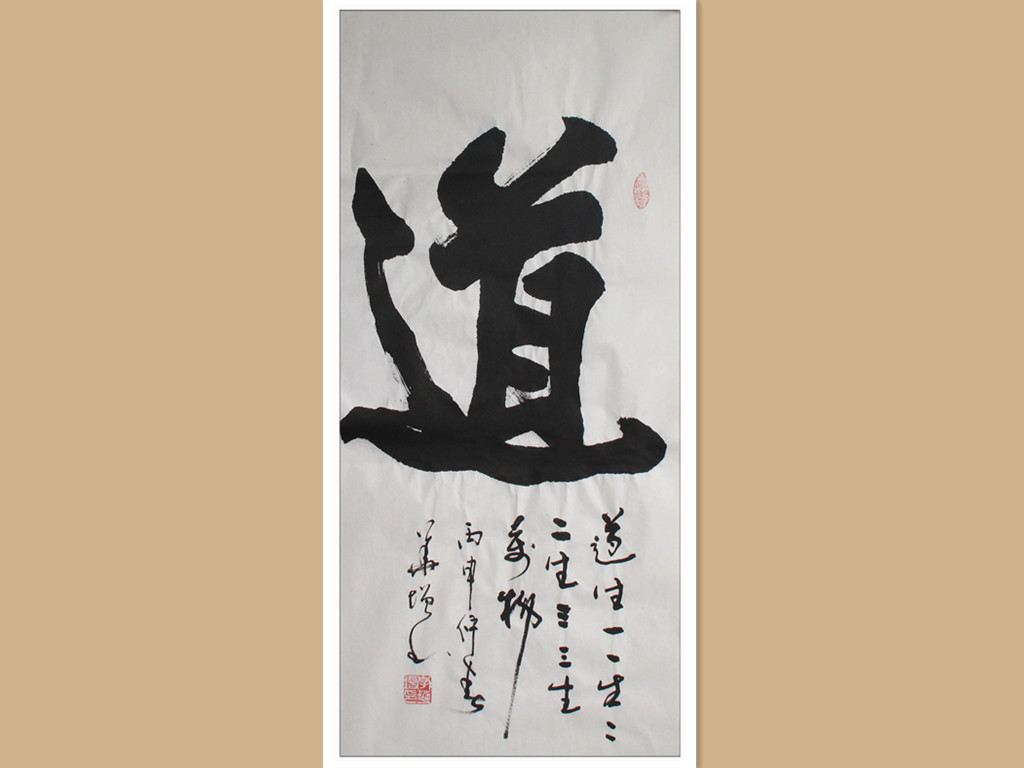 道
道生一一生二
二生三三生
萬物
丙申仲春
華增